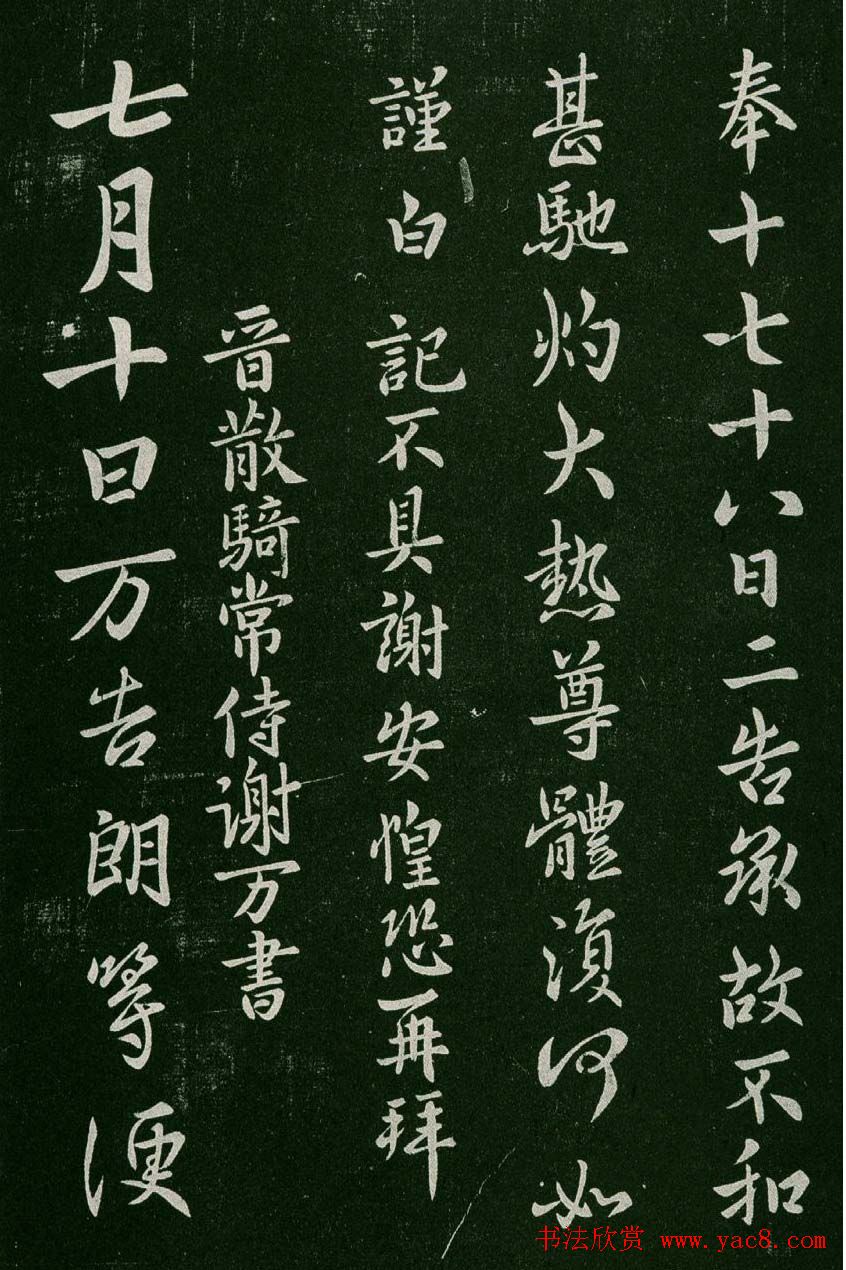 奉十七十八日二告承故不和
甚馳灼大热尊體復何如
謹白記不具謝安惶恐再拜
晉散騎常侍谢万書
七月十日万告朗等便
书法欣赏 www.yac8.com